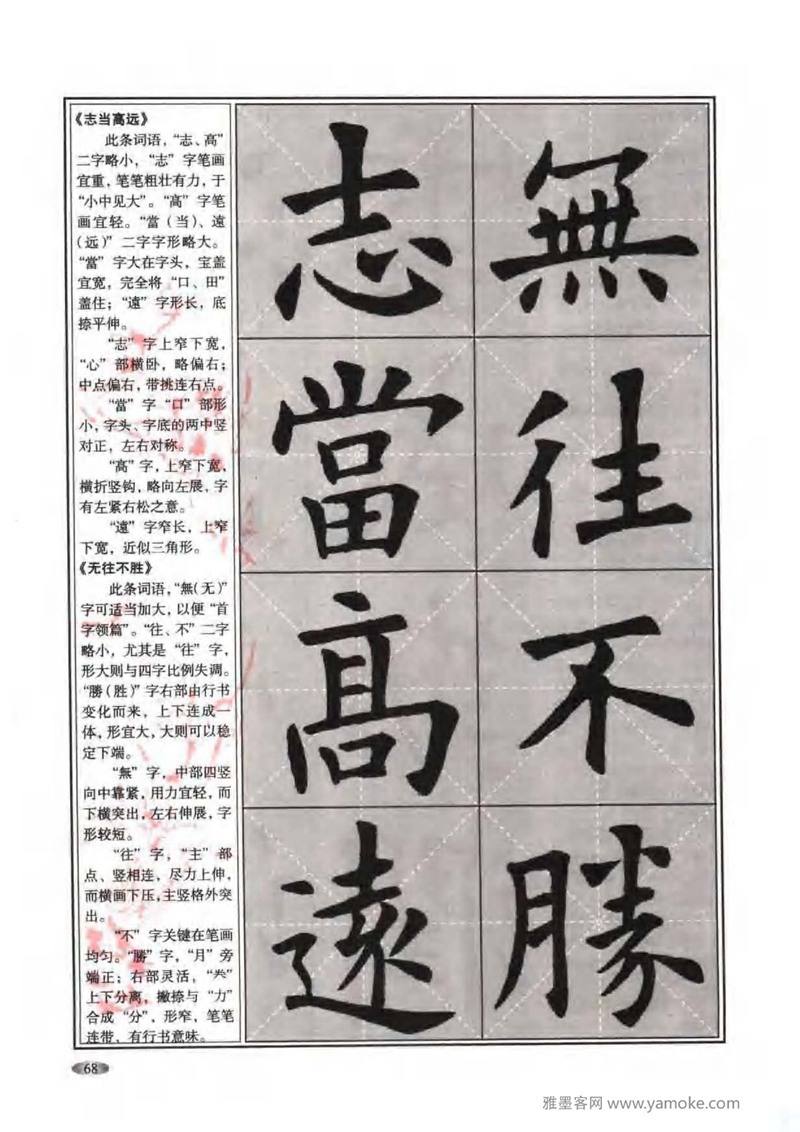 《志当高远》
此条词语，“志、高”
二字略小，“志”字笔画
宜重，笔笔粗壮有力，于
“小中见大”。“高”字笔
画宜轻。“當（当）、遠
（远）”二字字形略大。
“當”字大在字头，宝盖
宜宽，完全将“口、田”
盖住；“遠”字形长，底
捺平伸。
“志”字上窄下宽，
“心”部横卧，略偏右；
中点偏右，带挑连右点。
“當”字“口”部形
小，字头、字底的两中竖
对正，左右对称。
“高”字，上窄下宽、
横折竖钩，略向左展，字
有左紧右松之意。
“遠”字窄长，上窄
下宽，近似三角形。
《无往不胜》
此条词语，“無（无）”
字可适当加大，以便“首
字领篇”。“往、不”二字
略小，尤其是“往”字，
形大则与四字比例失调。
“勝（胜）”字右部由行书
变化而来，上下连成一
体，形宜大，大则可以稳
定下端。
“無”字，中部四竖
向中靠紧，用力宜轻，而
下横突出，左右伸展，字
形较短。
“往”字，“主”部
点、竖相连、尽力上伸，
而横画下压，主竖格外突
出。
“不”字关键在笔画
均匀。“勝”字，“月”旁
端正；右部灵活，“龹”
上下分离，撇捺与“力”
合成“分”，形窄，笔笔
连带，有行书意味。
無
往
不
勝
志
當
高
遠
68
雅墨客网 www.yamoke.com